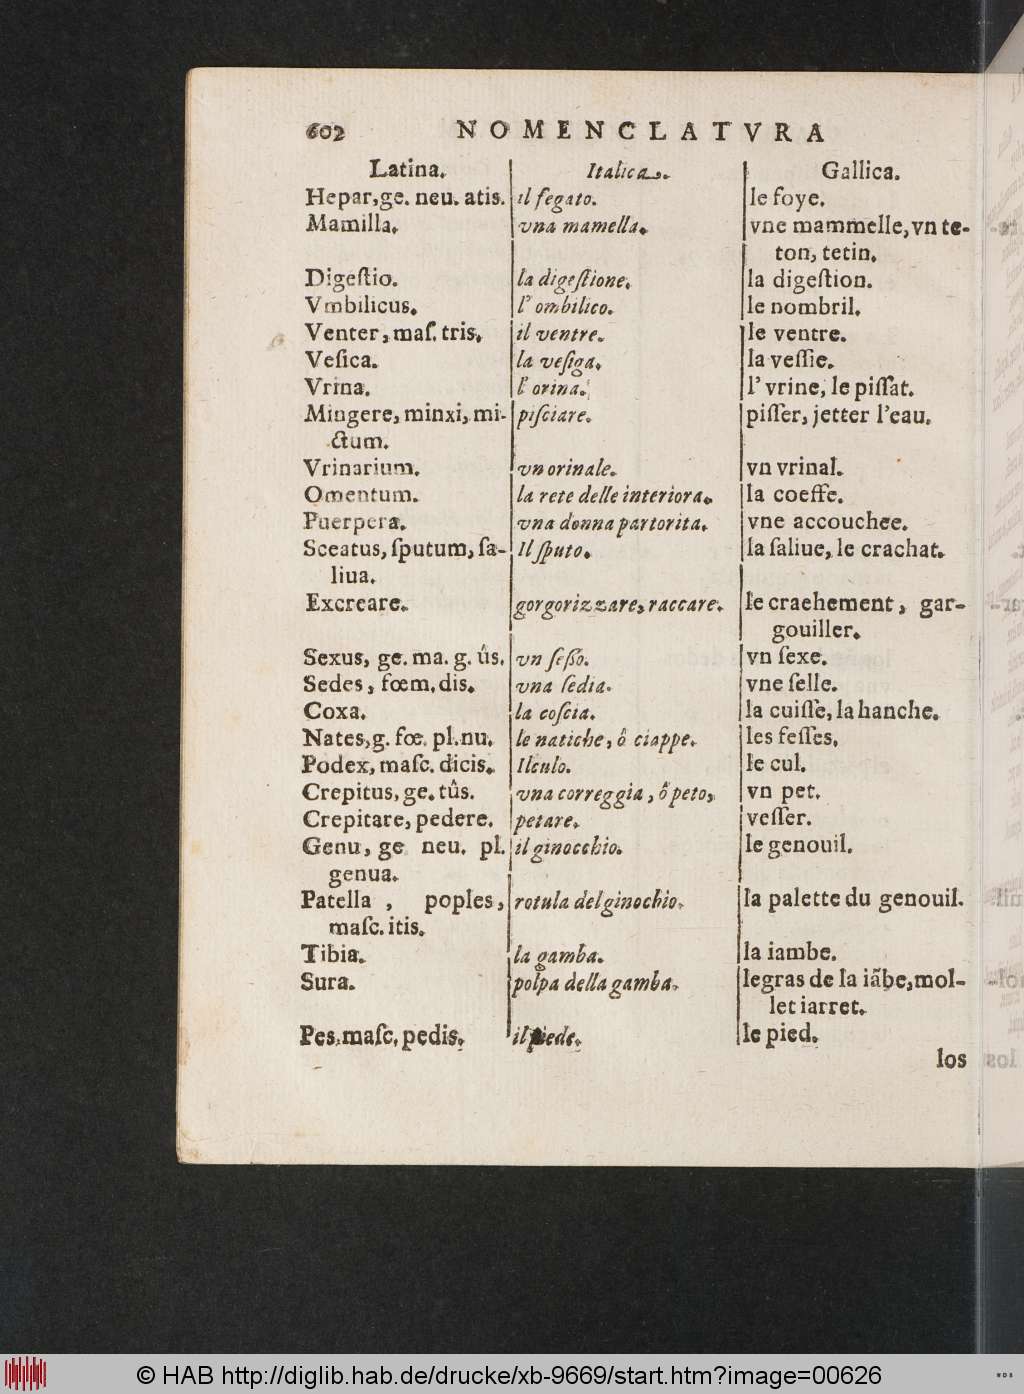 602 NOMENCLATVRA
Latina. Italica. Gallica.
Hepar, ge. neu. atis. il fegato. le foye.
Mamilla. vna mamella. vne mammelle, vn te-
ton, tetin.
Digeſtio. la digeſtione. la digeſtion.
Vmbilicus. l' ombilico. le nombril.
Venter, maſ. tris. il ventre. le ventre.
Veſica. la veſiga. la veſſie.
Vrina. l' orina. l' vrine, le piſſat.
Mingere, minxi, mi- piſciare. piſſer, jetter l'eau.
ctum.
Vrinarium. vn orinale. vn vrinal.
Omentum. la rete delle interiora. la coeffe.
Puerpera. vna donna partorita. vne accouchee.
Sceatus, ſputum, ſa- Il ſputo. la ſaliue, le crachat.
liua.
Excreare. gorgorizzare, raccare. le craehement, gar-
gouiller.
Sexus, ge. ma. g. ûs. vn ſeßo. vn ſexe.
Sedes, fœm. dis. vna ſedia. vne ſelle.
Coxa. la coſcia. la cuiſſe, la hanche.
Nates, g. fœ. pl. nu. le natiche, ô ciappe. les feſſes.
Podex, maſc. dicis. Il culo. le cul.
Crepitus, ge. tûs. vna correggia, ô peto, vn pet.
Crepitare, pedere. petare. veſſer.
Genu, ge neu. pl. il ginocchio. le genouil.
genua.
Patella, poples, rotula del ginochio. la palette du genouil.
maſc. itis.
Tibia. la gamba. la iambe.
Sura. polpa della gamba. le gras de la iãbe, mol-
let iarret.
Pes, maſc. pedis. il piede. le pied.
los
© HAB http://diglib.hab.de/drucke/xb-9669/start.htm?image=00626